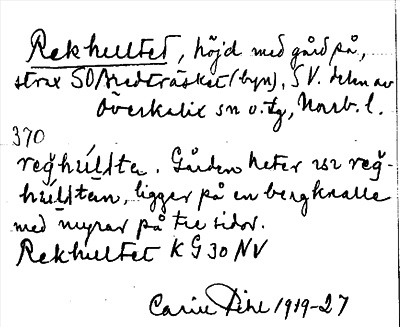 Rekhultet, höjd med gård på,
strax SO Hedträsket (byn), SV. delen av
Överkalix sn o. tg, Norrb. l.
370
Gården heter
ligger på en bergknalle
med myrar på tre sidor.
Rekhultet K G 30 NV
Carin Pihl 1919-27